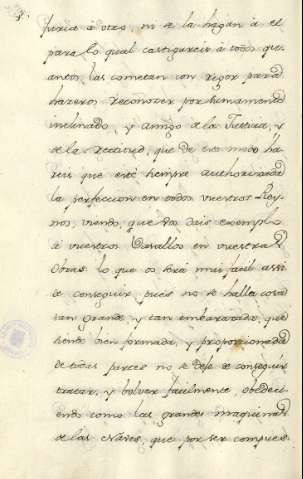 juria à otro, ni se la hagan à el
para lo qual castigareis à todos qu
antos las cometan con rigor para
hazeros reconozer por sumamente
inclinado, y amigo de la Justicia, y
de la rectitud, que de ese modo ha
reis que esté siempre authorizada
la perfeccion en todos vuestros Rey
nos, viendo, que vos dais exemplo
à vuestros Vasallos en vuestras
obras, lo que os será mui facil assi
de conseguir, pues no se halla cosa
tan grande, y tan embarazada, que
siendo bien formada, y proporcionada
de todas partes no se deje de conseguir
tratar, y bolver facilmente, obedeci
endo como las grandes maquinas
de las Naves, que por ser compues